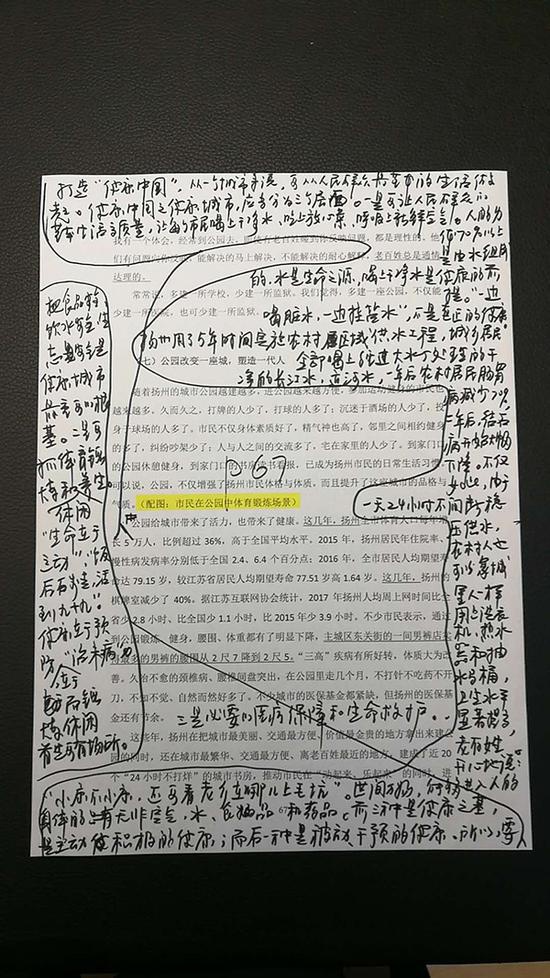 打造“健康中国”，从一个城市来说，可从人民群众最基本的生活做
起。健康中国之健康城市，应当分为三个层面。一是要让人民群众的
让每个市民喝上干净水，吃上放心菜，呼吸上新鲜空气。人的身
体70%以上
是由水组用
我有一个体会，经常到公园去，即使有老百姓碰到你反映问题，都是理性的。他
们有问题向你反映，能解决的马上解决，不能解决的耐心解释，老百姓总是通情
达理的。
常常说，多建一所学校，少建一所监狱。我们觉得，多建一座公园，不仅能
少建一所医院，也可少建一所监狱。
的，水是生命之源，喝上干净水是健康的前
提。“一边
喝脏水，一边挂盐水”，不是真正的健康。
扬州用了5年时间实施农村区域供水工程，城乡居民
全部喝上
净的长江水，运河水，一年后农村居民肠胃
病减少
（七）公园改变一座城，塑造一代人
随着扬州的城市公园越建越多，进公园越来越方便，参加运动健身的市民也
越来越多。久而久之，打牌的人少了，打球的人多了；沉迷于酒场的人少了，投
身于球场的人多了。市民不仅身体素质好了，精气神也高了，邻里之间相约健身
的多了，纠纷吵架少了；人与人之间的交流多了，宅在家里的人少了。到家门口
的公园休憩健身、到家门口的书房读书看报，已成为扬州市民的日常生活习惯。
可以说，公园，不仅增强了扬州市民体格与体质。而且提升了这座城市的品格与
气质。（配图：市民在公园中体育锻炼场景）
067
一天24小时不间断稳
压供水，
农村人也
可以象城
里人一样
用上洗衣
机，热水
器和抽
水马桶，
卫生水平
显著提高，
老百姓
公园给城市带来了活力，也带来了健康。这几年，扬州市体育人口每年增
长5万人，比例超过36%，高于全国平均水平。2015年，扬州居民年住院率、
慢性病发病率分别低于全国2.4、6.4个百分点；2016年，全市居民人均期望寿
命达79.15岁，较江苏省居民人均期望寿命77.51岁高1.64岁。这几年，扬州的
棋牌室减少了40%。据江苏互联网协会统计，2017年扬州人均周上网时间比全
省少2.8小时、比全国少1.1小时，比2015年少3.9小时。不少市民表示，通过
到公园锻炼、健身，腰围、体重都有了明显下降，主城区东关街的一间男裤店卖
的最多的男裤的腰围从2尺7降到2尺5。“三高”疾病有所好转，体质大为改
善。久治不愈的颈椎病、腰椎间盘突出，在公园里走几个月，不打针不吃药不开
刀，不知不觉、自然而然好多了。不少城市的医保基金都紧缺，但扬州的医保基
金还有节余。
三是必要的医疗保障和生命救护。
这些年，扬州在把城市最美丽、交通最方便、价值最金贵的地方拿出来建公
园的同时，还在城市最繁华、交通最方便、离老百姓最近的地方，建成了近20
个“24小时不打烊”的城市书房，推动市民在“动起来、乐起来”的同时，进
67
把食品药，
饮水安全，生
态安全是
健康城市
最重要的根
基。二是要
抓体育锻
炼和养生
休闲。
“生命在于
运动”，“饭
后百步走，活
到九十九”。
健康在于预
防，“治未病”
在于
锻
炼休闲
养生与有场所。
“小康不小康，还要看老百姓哪儿上毛坑”。世间万物，能够进入人的
身体的只有无非空气，水，食品和药品。前三种是健康之基，
是主动健积极的健康；而后一种是被动干预的健康。所以，要